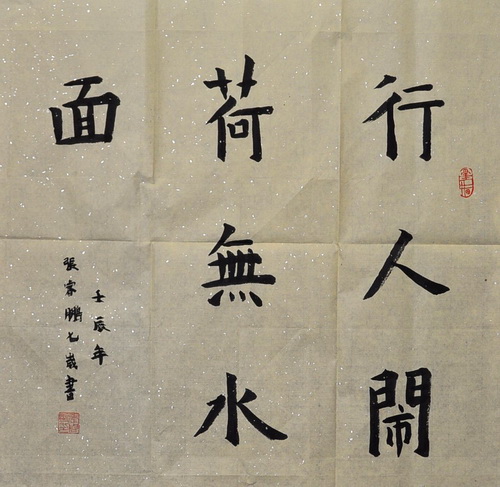 行人鬧
荷無水
面
壬辰年
張睿鵬七歲書